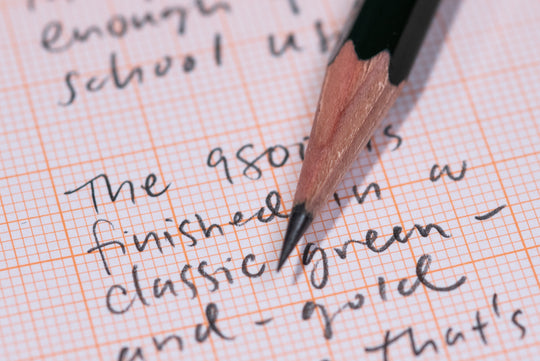 enough
school us
The 9801 is
finished in a
classic green-
and-gold
that's